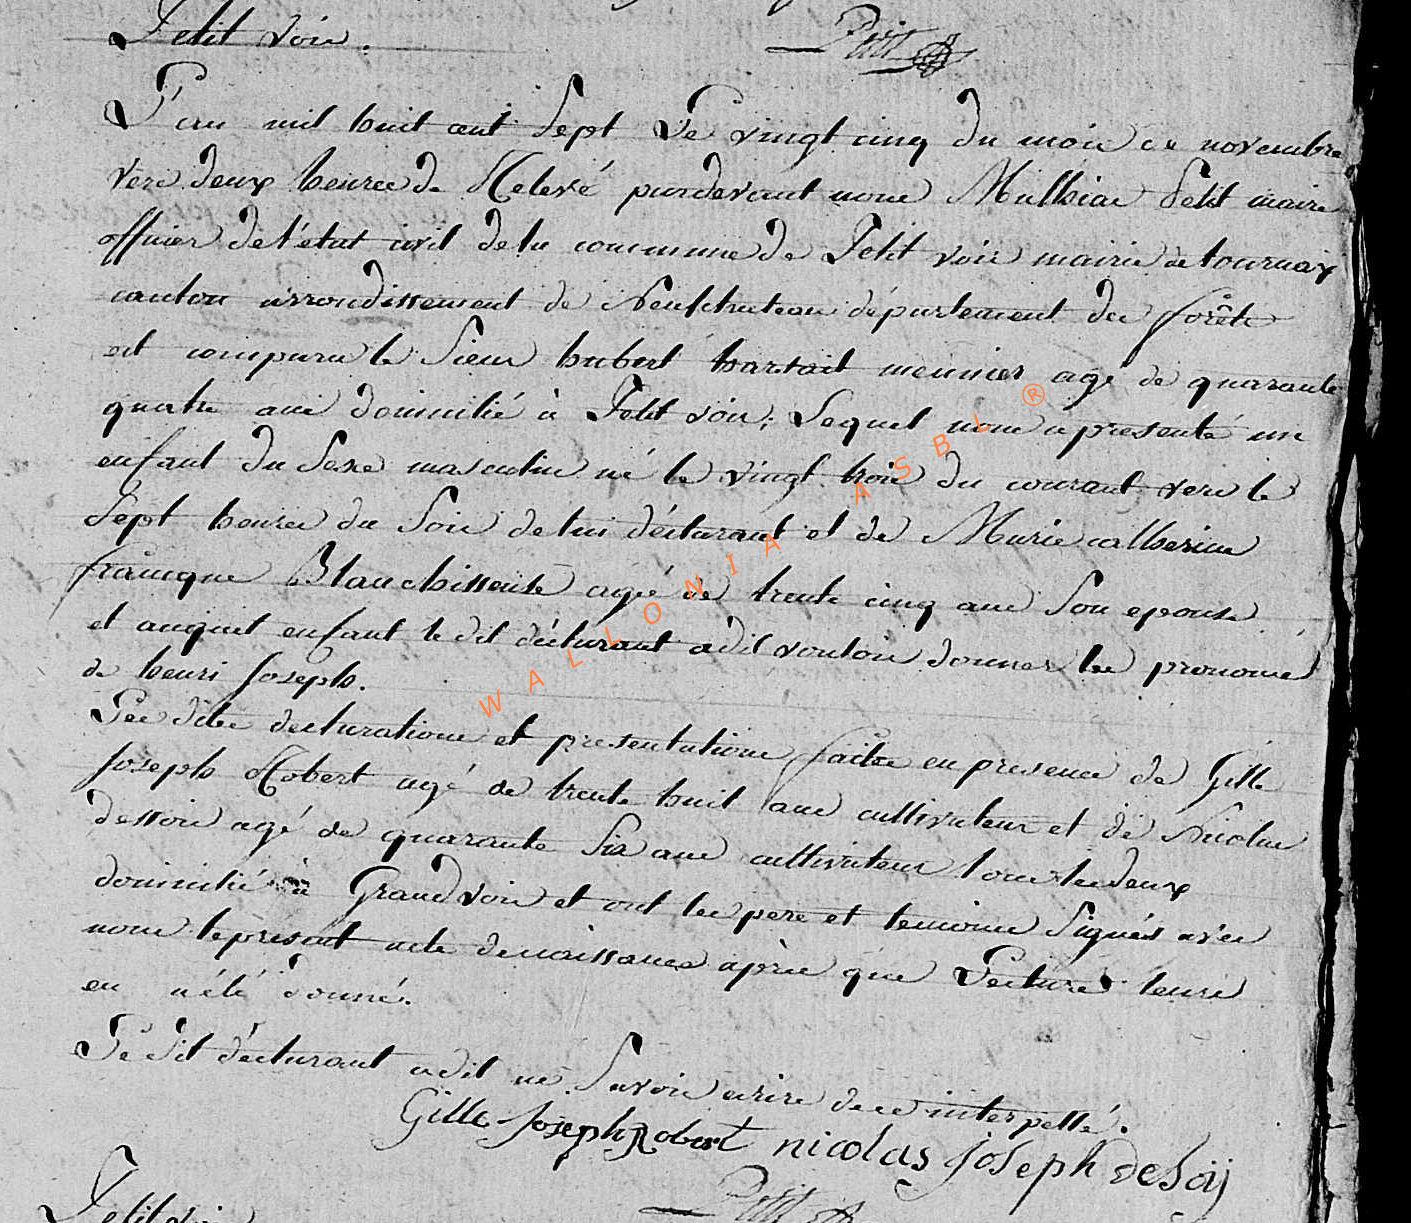 Petit voir.
Petit
L'an mil huit cent Sept Le vingt cinq du mois de novembre
vers deux heures de Relevé pardevant nous Mathias Petit maire
officier de l'état civil de la commune de Petit voir mairie de tournay
canton arrondissement de Neufchateau département des forêts
est comparu le Sieur hubert hartait meunier agé de quarante
quatre ans domicilié à Petit voir; Lequel nous a presenté un
enfant du Sexe masculin né le vingt trois du courant vers le
Sept heures du Soir de lui déclarant et de Marie catherine
françque Blanchisseuse agée de trente cinq ans Son epouse
et auquel enfant le dit déclarant a dit vouloir donner les prenoms
de henri Joseph.
Les dites declarations et presentations faites en presence de Gille
Joseph Robert agé de trente huit ans cultivateur et de Nicolas
dessoir agé de quarante Six ans cultivateur tous les deux
domicilié à Grandvoir et ont les pere et temoins Signés avec
nous le présent acte de naissance après que Lecture leurs
en a été donné.
Le dit déclarant a dit ne Savoir ecrire de ce interpellé.
Gille Joseph Robert nicolas Joseph desoij
Petit
Petit voir
WALLONIA ASBL ®